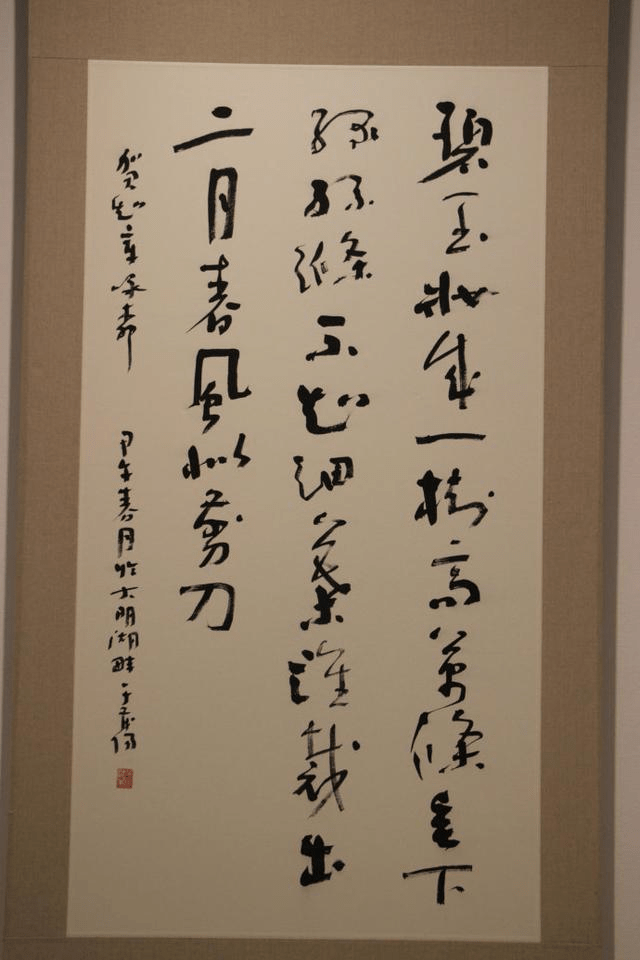 碧玉妝成一樹高萬條垂下
綠絲縧不知細葉誰裁出
二月春風似剪刀
賀知章咏柳 甲午春月於大明湖畔